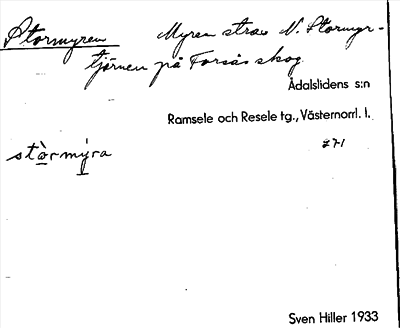 Stormyren Myren strax N. Stormyr-
tjärnen på Forsås skog.
Ådalslidens s:n
Ramsele och Resele tg., Västernorrl. l.
271
stòrmýra
Sven Hiller 1933